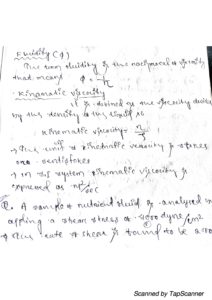 Fluidity (φ)
The term fluidity is the reciprocal of viscosity
that means φ = 1/η
· Kinematic viscosity
It is defined as the viscosity divided
by the density of the liquid so
Kinematic viscosity = η/ρ
→ The unit of kinematic viscosity is stokes
centistokes
→ In SI system kinematic viscosity is
expressed as m²/sec
Q. A sample of nutrient fluid is analyzed in
applying a shear stress of 4000 dyne/cm²
→ The rate of shear is found to be
Scanned by TapScanner